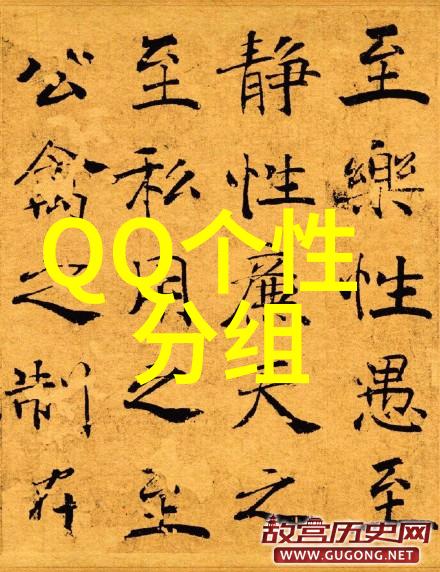 至樂性愚至
静性廉天之
至私用之至
公禽之制在
QQ个性
分组
故宫历史网
WWW.GUGONG.NET